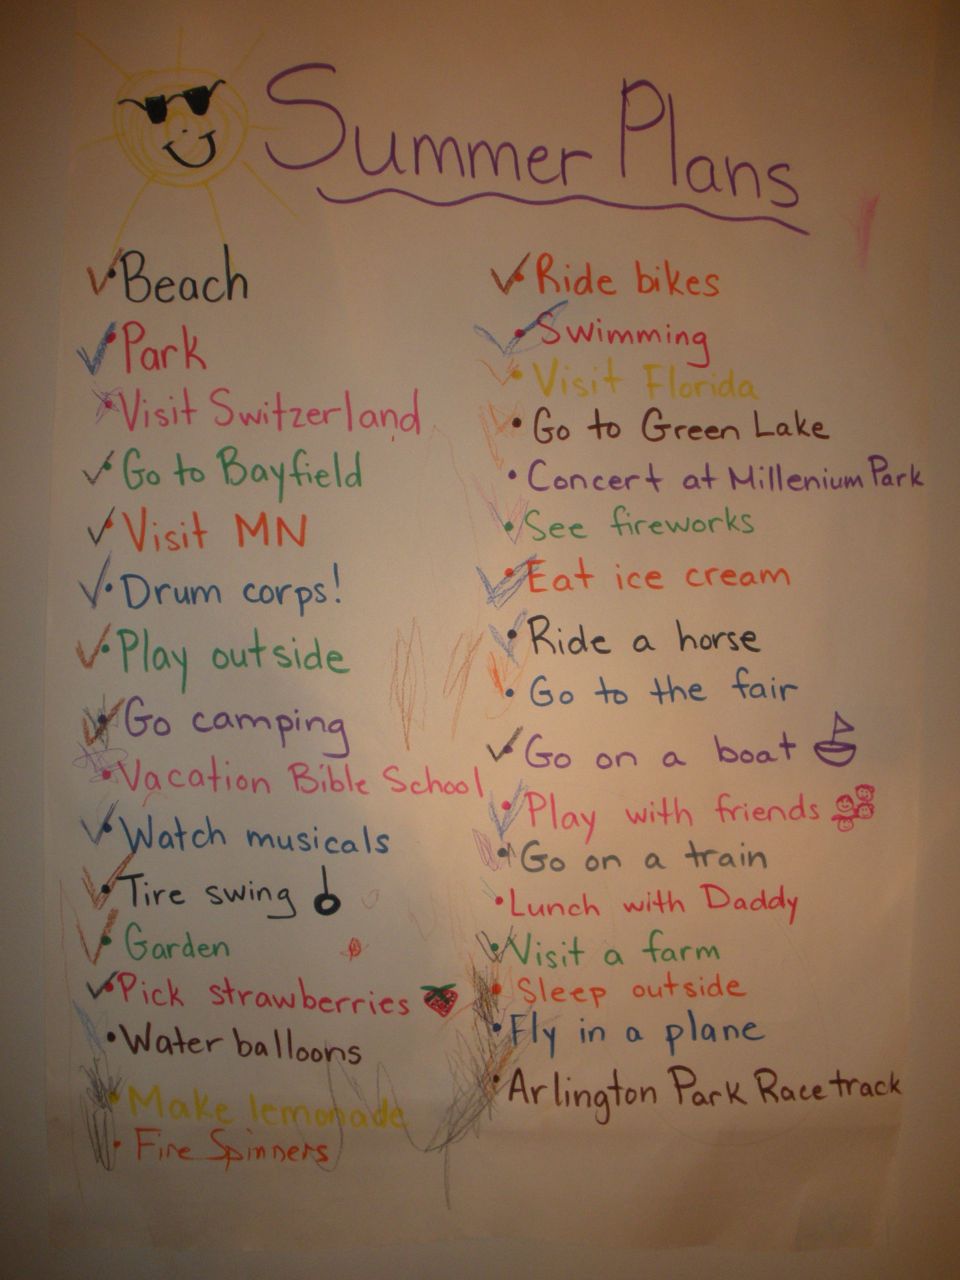 Summer Plans
• Beach
• Park
• Visit Switzerland
• Go to Bayfield
• Visit MN
• Drum corps!
• Play outside
• Go camping
• Vacation Bible School
• Watch musicals
• Tire swing
• Garden
• Pick strawberries
• Water balloons
• Make lemonade
• Fire Spinners
• Ride bikes
• Swimming
• Visit Florida
• Go to Green Lake
• Concert at Millenium Park
• See fireworks
• Eat ice cream
• Ride a horse
• Go to the fair
• Go on a boat
• Play with friends
• Go on a train
• Lunch with Daddy
• Visit a farm
• Sleep outside
• Fly in a plane
• Arlington Park Racetrack